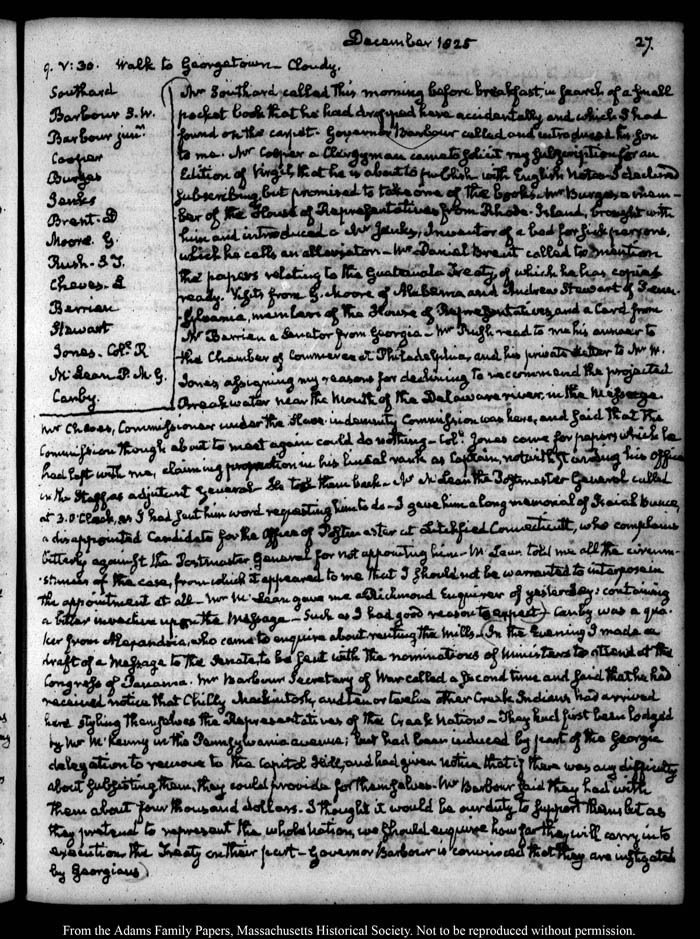 December 1825
27.
9. V:30. Walk to Georgetown – Cloudy.
Southard
Barbour S. W.
Barbour junr.
Cooper
Burges
Jenks
Brent. D
Moore. G.
Rush. S. T.
Cheves. L
Berrien
Stewart
Jones. Coll. R
McLean P. M. G.
Canby.
Mr Southard called this morning before breakfast, in search of a small
pocket book that he had dropped here accidentally and which I had
found on the carpet. Governor Barbour called and introduced his Son
to me. Mr Cooper a Clergyman came to solicit my subscription for an
Edition of Virgil that he is about to publish with English Notes. I declined
subscribing, but promised to take one of the books. Mr Burges, a mem-
ber of the House of Representatives from Rhode-Island, brought with
him and introduced a Mr Jenks, Inventor of a bed for sick persons,
which he calls an alleviator – Mr Daniel Brent called to mention
the papers relating to the Guatemala Treaty, of which he has copies
ready. Visits from G. Moore of Alabama and Andrew Stewart of Penn-
sylvania, members of the House of Representatives, and a Card from
Mr Berrien a Senator from Georgia – Mr Rush read to me his answer to
the Chamber of Commerce at Philadelphia, and his private Letter to Mr W.
Jones, assigning my reasons for declining to recommend the projected
Breakwater near the Mouth of the Delaware river, in the Message.
Mr Cheves, Commissioner under the Slave indemnity Commission was here, and said that the
Commission though about to meet again could do nothing – Coll. Jones came for papers which he
had left with me, claiming in his lineal rank as Captain, notwithstanding his office
in the Staff as adjutant General – He took them back – Mr McLean the Postmaster General called
at 3. O'Clock, as I had sent him word requesting him to do – I gave him a long memorial of Isaiah Bunce,
a disappointed Candidate for the Office of Postmaster at Litchfield Connecticut, who complains
bitterly against the Postmaster General for not appointing him – McLean told me all the circum-
stances of the case, from which it appeared to me that I should not be warranted to interpose in
the appointment at all – Mr McLean gave me a Richmond Enquirer of yesterday: containing
a bitter invective upon the Message – Such as I had good reason to expect – Canby was a qua-
ker from Alexandria, who came to enquire about renting the Mills – In the Evening I made a
draft of a Message to the Senate, to be sent with the nominations of Ministers to attend at the
Congress of Panama. Mr Barbour Secretary of War called a second time and said that he had
received notice that Chilly Mackintosh, and ten or twelve other Creek Indians had arrived
here styling themselves the Representatives of the Creek Nation – They had first been lodged
by Mr McKenny in the Pennsylvania avenue; but had been induced by part of the Georgia
delegation to remove to the Capitol Hill, and had given notice that if there was any difficulty
about subsisting them, they could provide for themselves. Mr Barbour said they had with
them about four thousand dollars. I thought it would be our duty to support them but as
they pretend to represent the whole nation, we should enquire how far they will carry into
execution the Treaty on their part – Governor Barbour is convinced that they are instigated
by Georgians
From the Adams Family Papers, Massachusetts Historical Society. Not to be reproduced without permission.